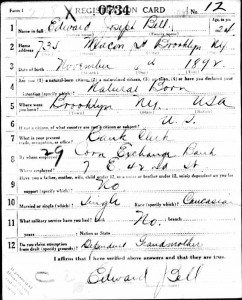 Form 1
X 0734 No. 12
1 Name in full Edward Joseph Bell Age, in yrs. 24
2 Home address 735 Macon St Brooklyn Ny.
3 Date of birth November 1892
4 Are you (1) a natural-born citizen, (2) a naturalized citizen, (3) an alien, (4) or have you declared your intention (specify which)? Natural Born
5 Where were you born? Brooklyn Ny. USA
6 If not a citizen, of what country are you a citizen or subject? U.S.
7 What is your present trade, occupation, or office? Bank Clerk
8 By whom employed? Corn Exchange Bank
29
Where employed? 7 E 42nd St
9 Have you a father, mother, wife, child under 12, or a sister or brother under 12, solely dependent on you for support (specify which)? No
10 Married or single (which)? Single Race (specify which)? Caucasian
11 What military service have you had? Rank No. branch
years Nation or State
12 Do you claim exemption from draft (specify grounds)? Dependent Grandmother
I affirm that I have verified above answers and that they are true.
Edward Bell